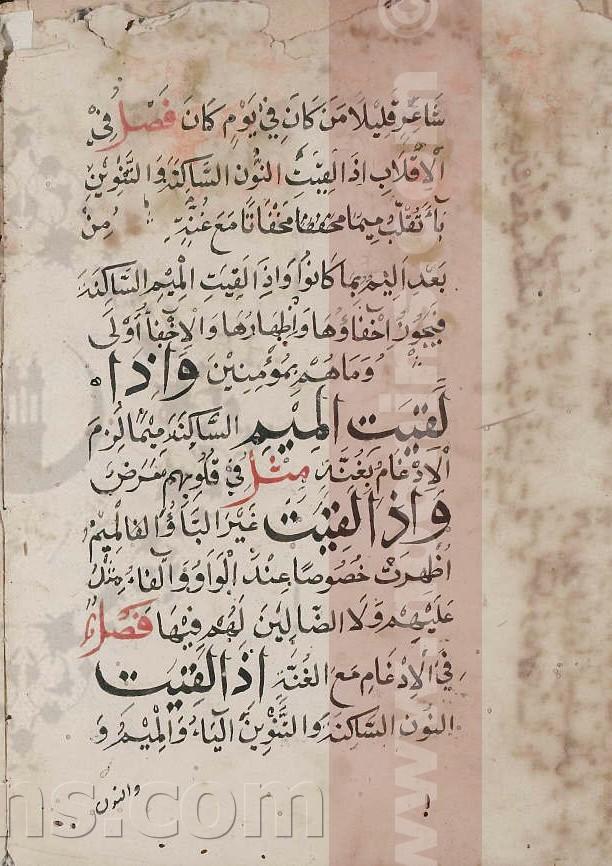 شَاعِرٍ قَلِيلًا مَنْ كَانَ فِي يَوْمٍ كَانَ فَصْلٌ فِي
الْاِقْلَابِ اِذَا لَقِيَتِ النُّونُ السَّاكِنَةُ وَالتَّنْوِينُ
بَاءً تُقْلَبُ مِيمًا مَعَ غُنَّةٍ مِنْ
بَعْدِ اَلِيمٌ بِمَا كَانُوا وَاِذَا لَقِيَتِ الْمِيمُ السَّاكِنَةُ
فَيَجُوزُ اِخْفَاؤُهَا وَاِظْهَارُهَا وَالْاِخْفَاءُ اَوْلَى
وَمَا هُمْ بِمُؤْمِنِينَ وَاِذَا
لَقِيَتِ الْمِيمُ السَّاكِنَةُ مِيمًا لَزِمَ
الْاِدْغَامُ بِغُنَّةٍ مِثْلُ فِي قُلُوبِهِمْ مَرَضٌ
وَاِذَا لَقِيَتْ غَيْرَ الْبَاءِ وَالْمِيمِ
اُظْهِرَتْ خُصُوصًا عِنْدَ الْوَاوِ وَالْفَاءِ مِثْلُ
عَلَيْهِمْ وَلَا الضَّالِّينَ لَهُمْ فِيهَا فَصْلٌ
فِي الْاِدْغَامِ مَعَ الْغُنَّةِ اِذَا لَقِيَتِ
النُّونُ السَّاكِنَةُ وَالتَّنْوِينُ الْيَاءَ وَالْمِيمَ وَ
والنون
ns.com
www.